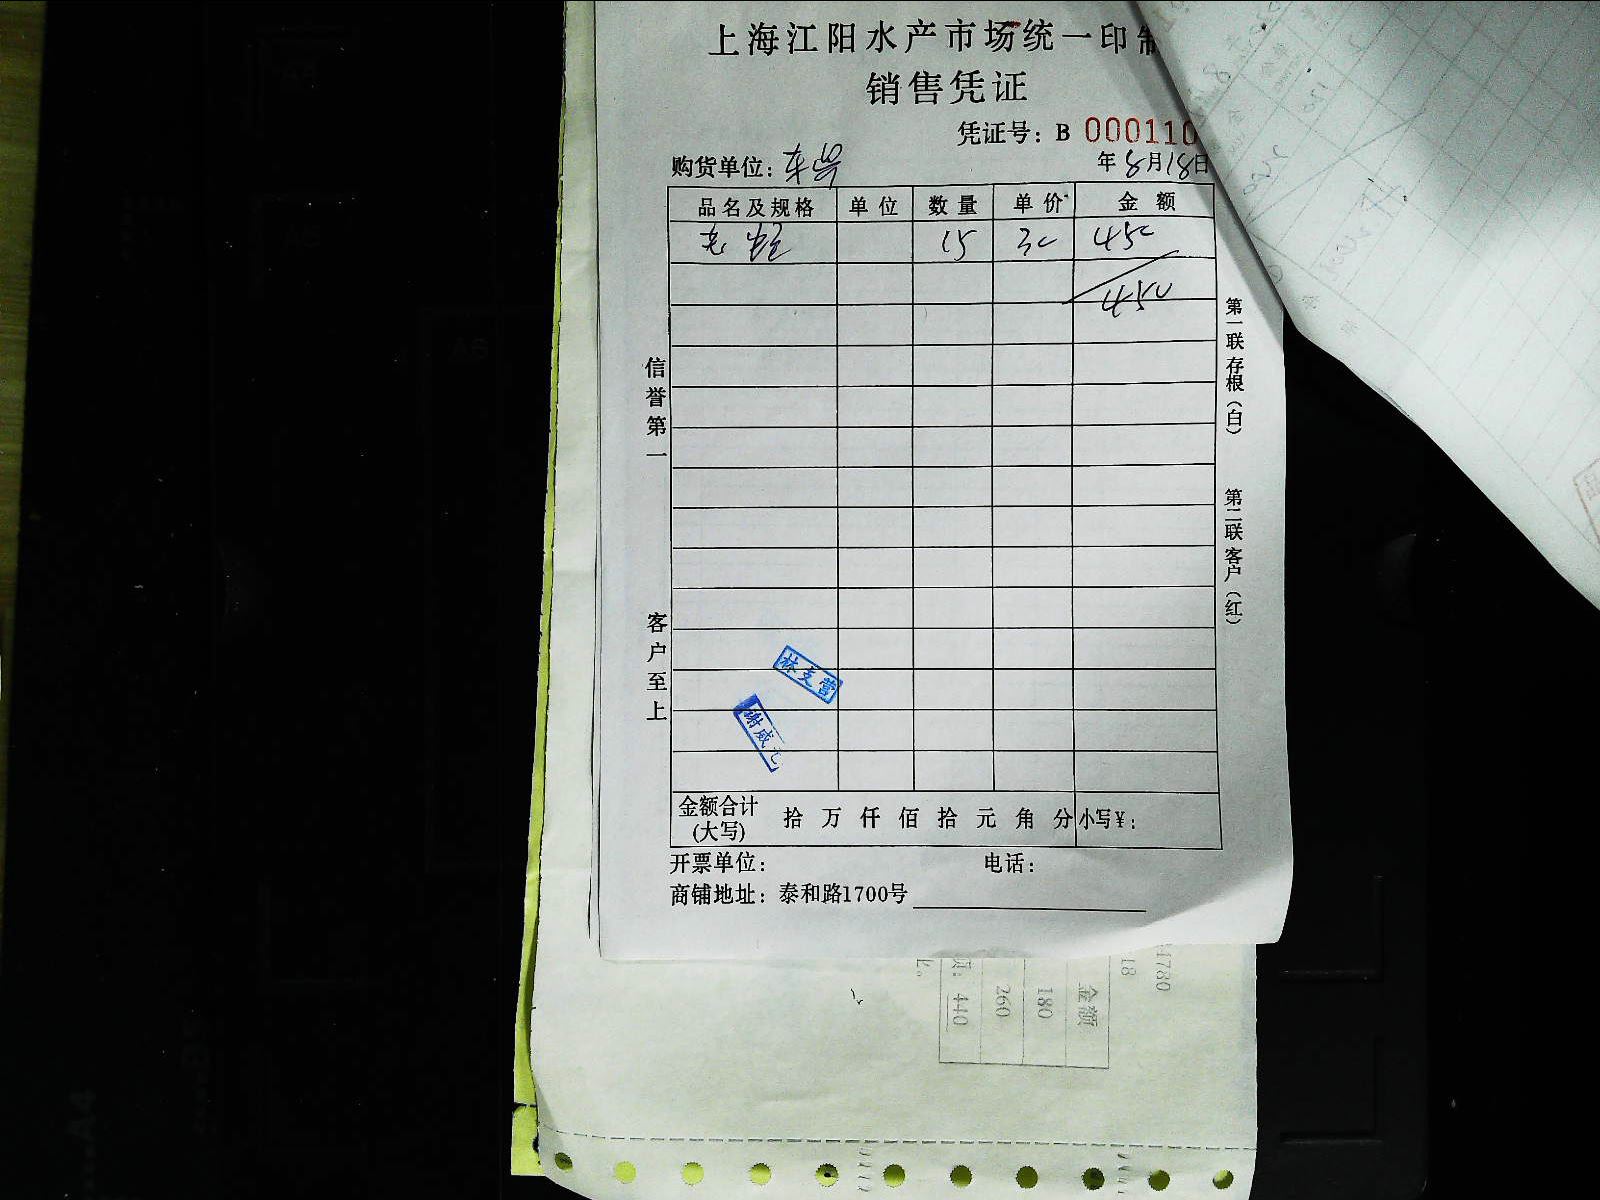 上海江阳水产市场统一印制
销售凭证
凭证号：B 000110
购货单位：
年 8月18日
品名及规格 单位 数量 单价 金额
15 30 450
450
信誉第一
客户至上
第一联存根（白）
第二联客户（红）
林支营
谢威元
金额合计(大写) 拾 万 仟 佰 拾 元 角 分 小写¥：
开票单位： 电话：
商铺地址：泰和路1700号
1780
18
金额
180
260
440